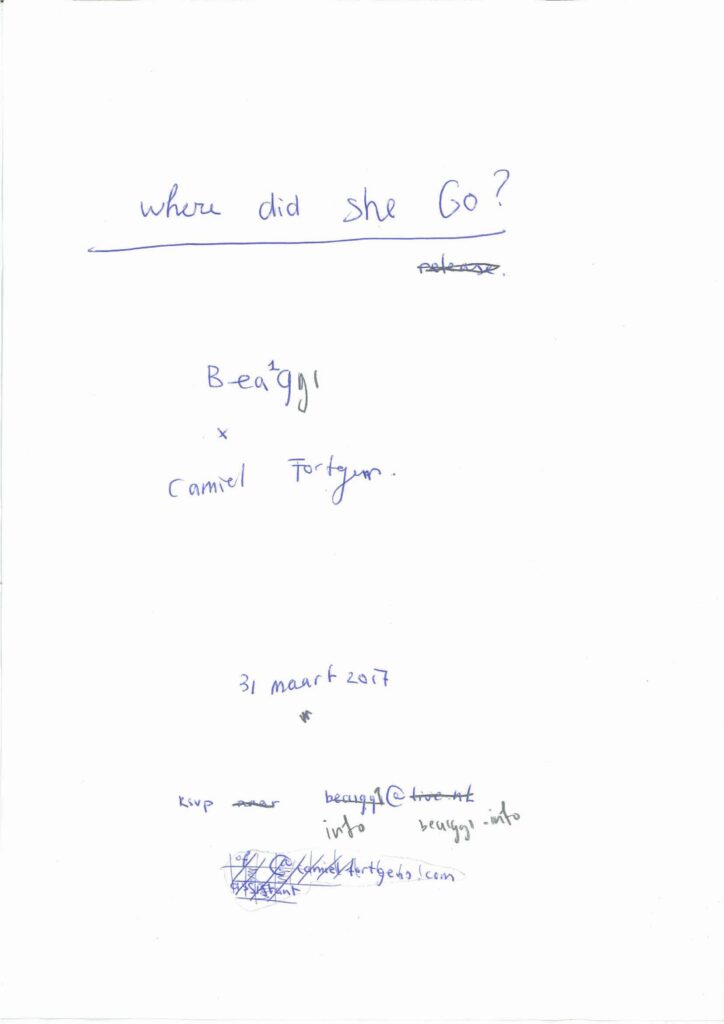 where did she Go?
release.
Bea1ggi
x
Camiel Fortgens.
31 maart 2017
RSVP naar beaiggi@live.nl
info beaiggi.info
of @camielfortgens.com
assistant